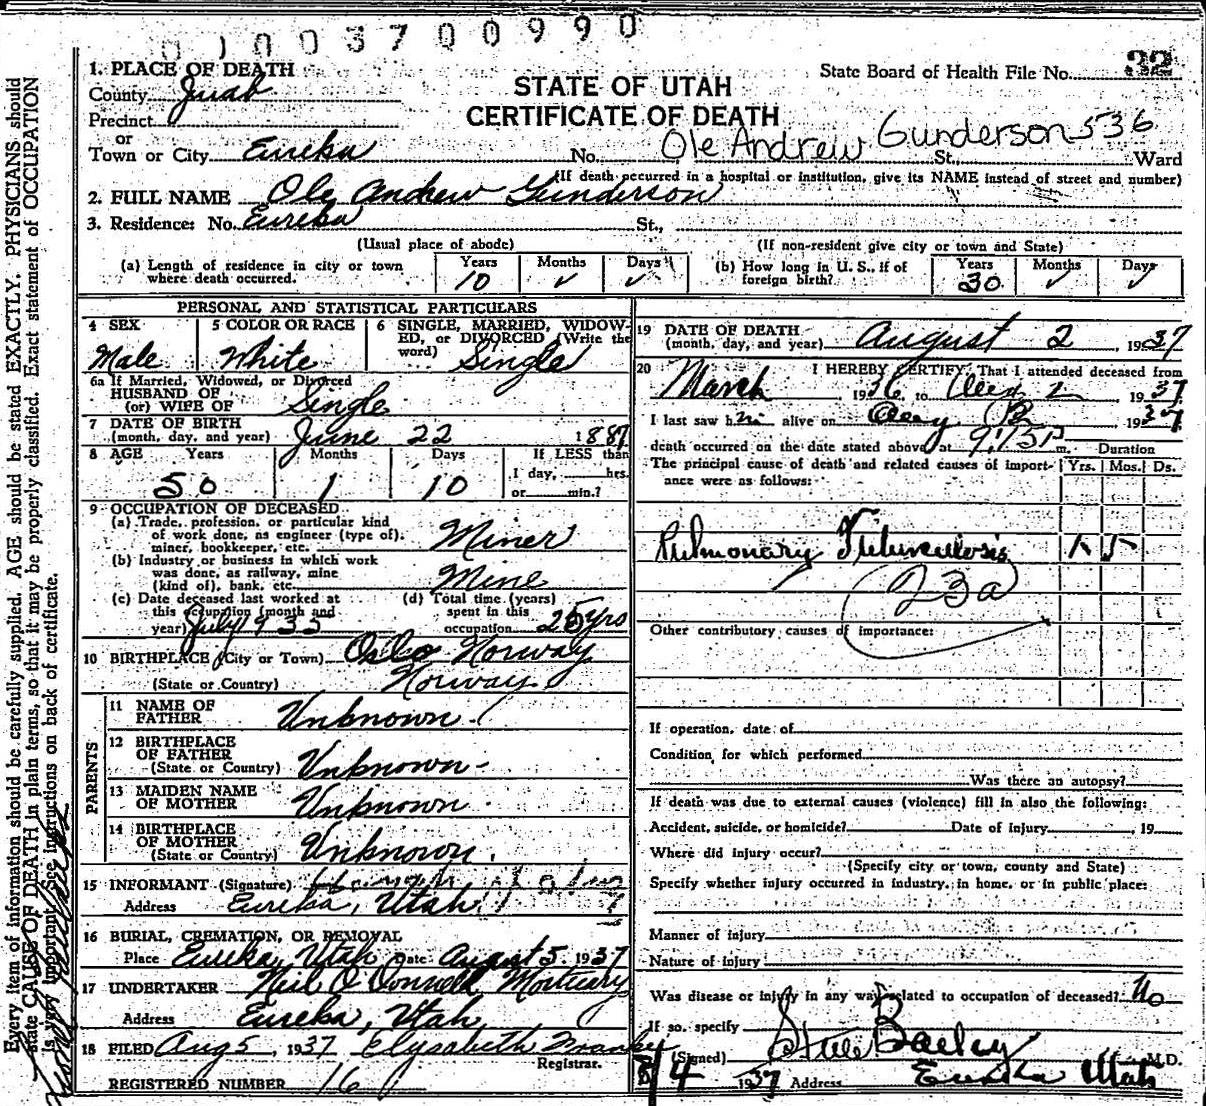 0100370099 0
1. PLACE OF DEATH
State Board of Health File No. 32
County Juab
STATE OF UTAH
CERTIFICATE OF DEATH
Precinct
or
Town or City Eureka No. Ole Andrew Gunderson 536 St., Ward
(If death occurred in a hospital or institution, give its NAME instead of street and number)
2. FULL NAME Ole Andrew Gunderson
3. Residence: No. Eureka St.,
(Usual place of abode) (If non-resident give city or town and State)
(a) Length of residence in city or town where death occurred. Years 10 Months ✓ Days ✓
(b) How long in U. S., if of foreign birth? Years 30 Months ✓ Days ✓
PERSONAL AND STATISTICAL PARTICULARS
4 SEX Male
5 COLOR OR RACE White
6 SINGLE, MARRIED, WIDOWED, or DIVORCED (Write the word) Single
6a If Married, Widowed, or Divorced
HUSBAND OF
(or) WIFE OF Single
7 DATE OF BIRTH
(month, day, and year) June 22 1887
8 AGE Years 50 Months 1 Days 10 If LESS than 1 day, hrs. or min.?
9 OCCUPATION OF DECEASED
(a) Trade, profession, or particular kind
of work done, as engineer (type of),
miner, bookkeeper, etc. Miner
(b) Industry or business in which work
was done, as railway, mine
(kind of), bank, etc. Mine
(c) Date deceased last worked at
this occupation (month and
year) July 1935
(d) Total time (years)
spent in this
occupation 25 yrs
10 BIRTHPLACE (City or Town) Oslo Norway
(State or Country) Norway
PARENTS
11 NAME OF
FATHER Unknown
12 BIRTHPLACE
OF FATHER
(State or Country) Unknown
13 MAIDEN NAME
OF MOTHER Unknown
14 BIRTHPLACE
OF MOTHER
(State or Country) Unknown
15 INFORMANT (Signature)
Address Eureka, Utah
16 BURIAL, CREMATION, OR REMOVAL
Place Eureka, Utah Date August 5, 1937
17 UNDERTAKER Neil O'Donnell Mortuary
Address Eureka, Utah
18 FILED Aug 5, 1937 Elysabeth
Registrar.
REGISTERED NUMBER 16
19 DATE OF DEATH
(month, day, and year) August 2, 1937
20 I HEREBY CERTIFY, That I attended deceased from
March 1936 to Aug 2 1937
I last saw him alive on Aug 1937
death occurred on the date stated above, at 9:15P m. Duration
The principal cause of death and related causes of importance were as follows: Yrs. Mos. Ds.
Pulmonary Tuberculosis 1 5
23a
Other contributory causes of importance:
If operation, date of
Condition for which performed
Was there an autopsy?
If death was due to external causes (violence) fill in also the following:
Accident, suicide, or homicide? Date of injury , 19
Where did injury occur?
(Specify city or town, county and State)
Specify whether injury occurred in industry, in home, or in public place:
Manner of injury
Nature of injury
Was disease or injury in any way related to occupation of deceased? No
If so, specify
(Signed) Steele Bailey M.D.
8/4 1937 Address Eureka Utah
Every item of information should be carefully supplied. AGE should be stated EXACTLY. PHYSICIANS should
state CAUSE OF DEATH in plain terms, so that it may be properly classified. Exact statement of OCCUPATION
is very important. See instructions on back of certificate.